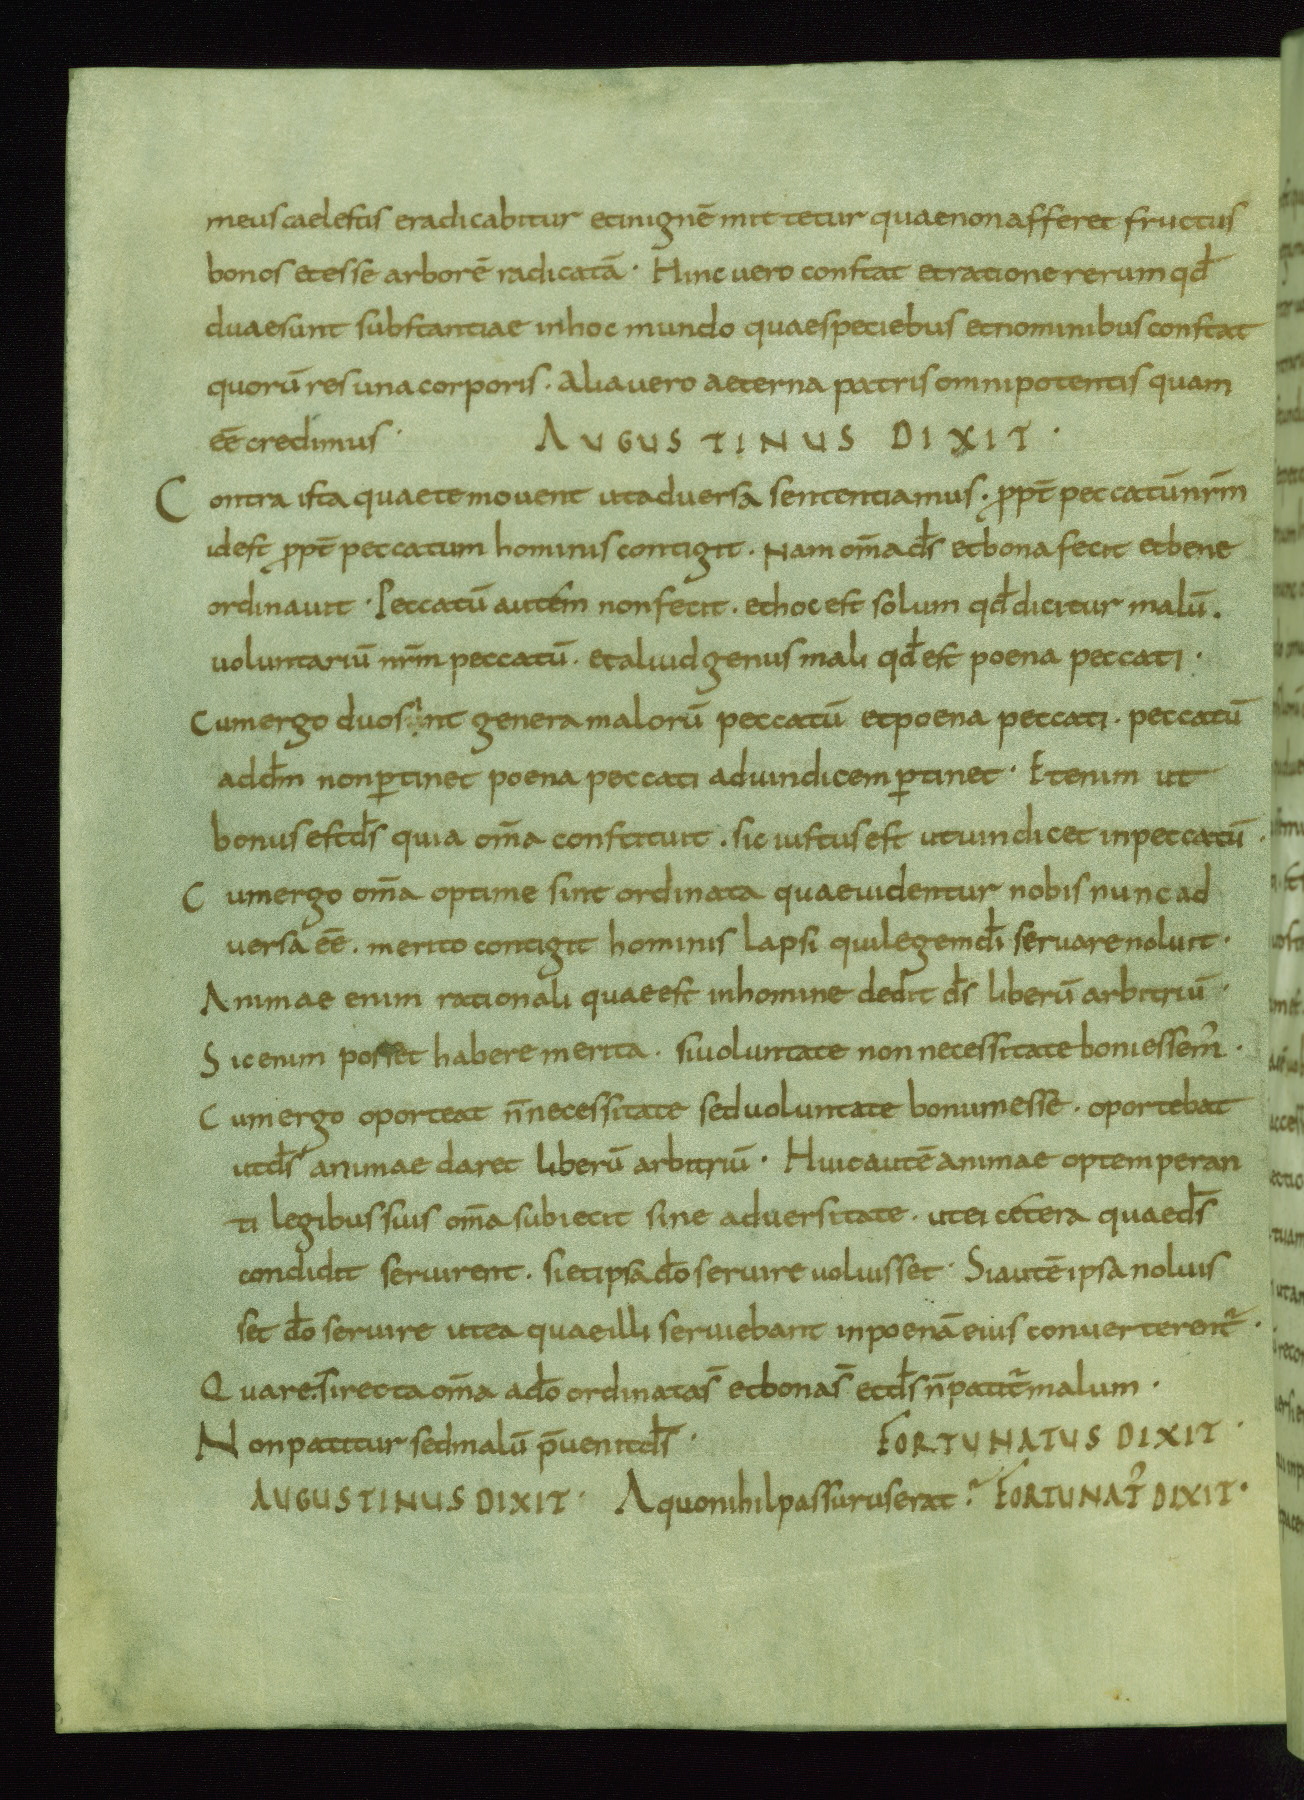 meus caelestis eradicabitur et in ignē mittetur quae non afferet fructus
bonos et esse arborē radicatā · Hinc uero constat et ratione rerum qđ
duae sunt substantiae in hoc mundo quae speciebus et nominibus constat
quorū res una corporis · alia uero aeterna patris omnipotentis quam
eē credimus · AUGUSTINUS DIXIT ·
Contra ista quae te mouent ut aduersa sententiamus · ꝓpt̄ peccatū nr̄m
id est ꝓpt̄ peccatum hominis contigit · Nam om̄a ds̄ et bona fecit et bene
ordinauit · Peccatū autem non fecit · et hoc est solum qđ dicitur malū ·
uoluntariū nr̄m peccatū · et aliud genus mali qđ est poena peccati ·
Cum ergo duo sint genera malorū peccatū et poena peccati · peccatū
ad dm̄ non ꝑtinet poena peccati ad uindicem ꝑtinet · Etenim ut
bonus est ds̄ quia om̄a constituit · sic iustus est ut uindicet in peccatū ·
Cum ergo om̄a optime sint ordinata quae uidentur nobis nunc ad
uersa eē · merito contigit hominis lapsi qui legem dī seruare noluit ·
Animae enim rationali quae est in homine dedit ds̄ liberū arbitriū ·
Sic enim posset habere merita · si uoluntate non necessitate boni essem̄ ·
Cum ergo oporteat n̄ necessitate sed uoluntate bonum esse · oportebat
ut ds̄ animae daret liberū arbitriū · Huic autē animae optemperan
ti legibus suis om̄a subiecit sine aduersitate · ut ei cetera quae ds̄
condidit seruirent · si et ipsa dō seruire uoluisset · Si autē ipsa noluis
set dō seruire ut ea quae illi seruiebant in poenā eius conuerterent᷑ ·
Quare si recta om̄a a dō ordinata s̄ et bona s̄ et ds̄ n̄ patit᷑ malum ·
Non patitur sed malū p̄uenit ds̄ · FORTUNATUS DIXIT ·
AUGUSTINUS DIXIT · A quo nihil passurus erat? FORTUNAT᷒ DIXIT ·